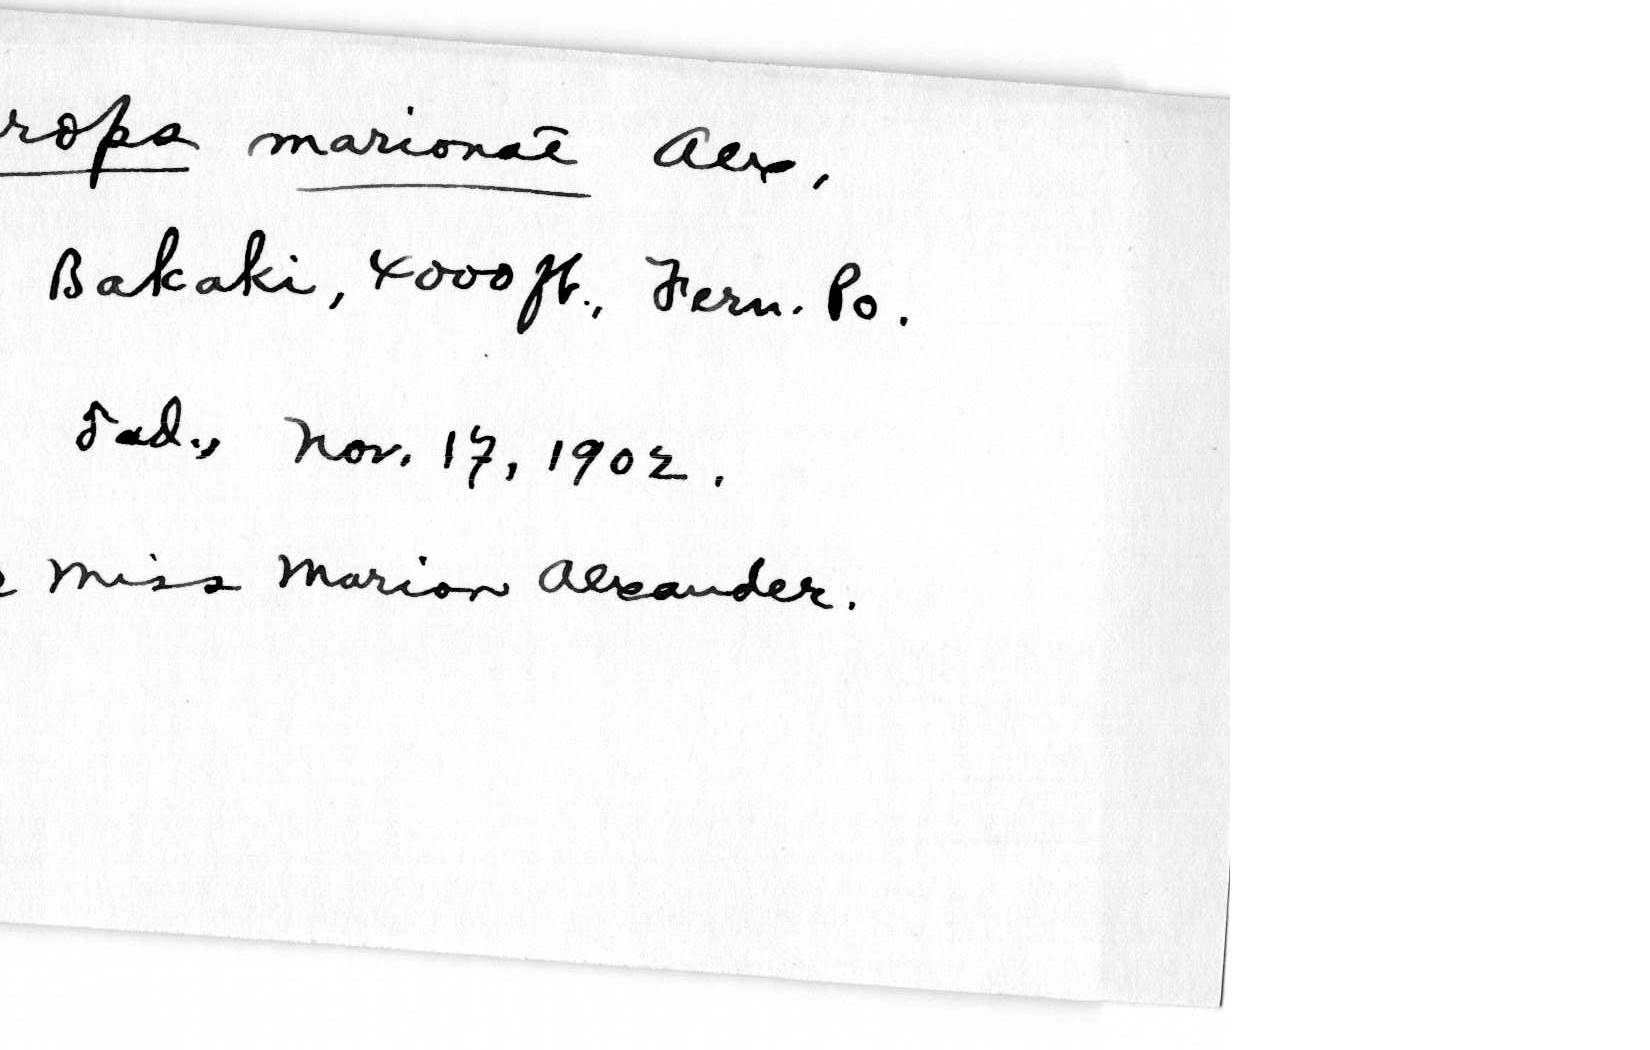 rops marionae Alex,
Bakaki, 4000 ft., Fern. Po.
♂ ad., Nov. 17, 1902.
Miss Marion Alexander.